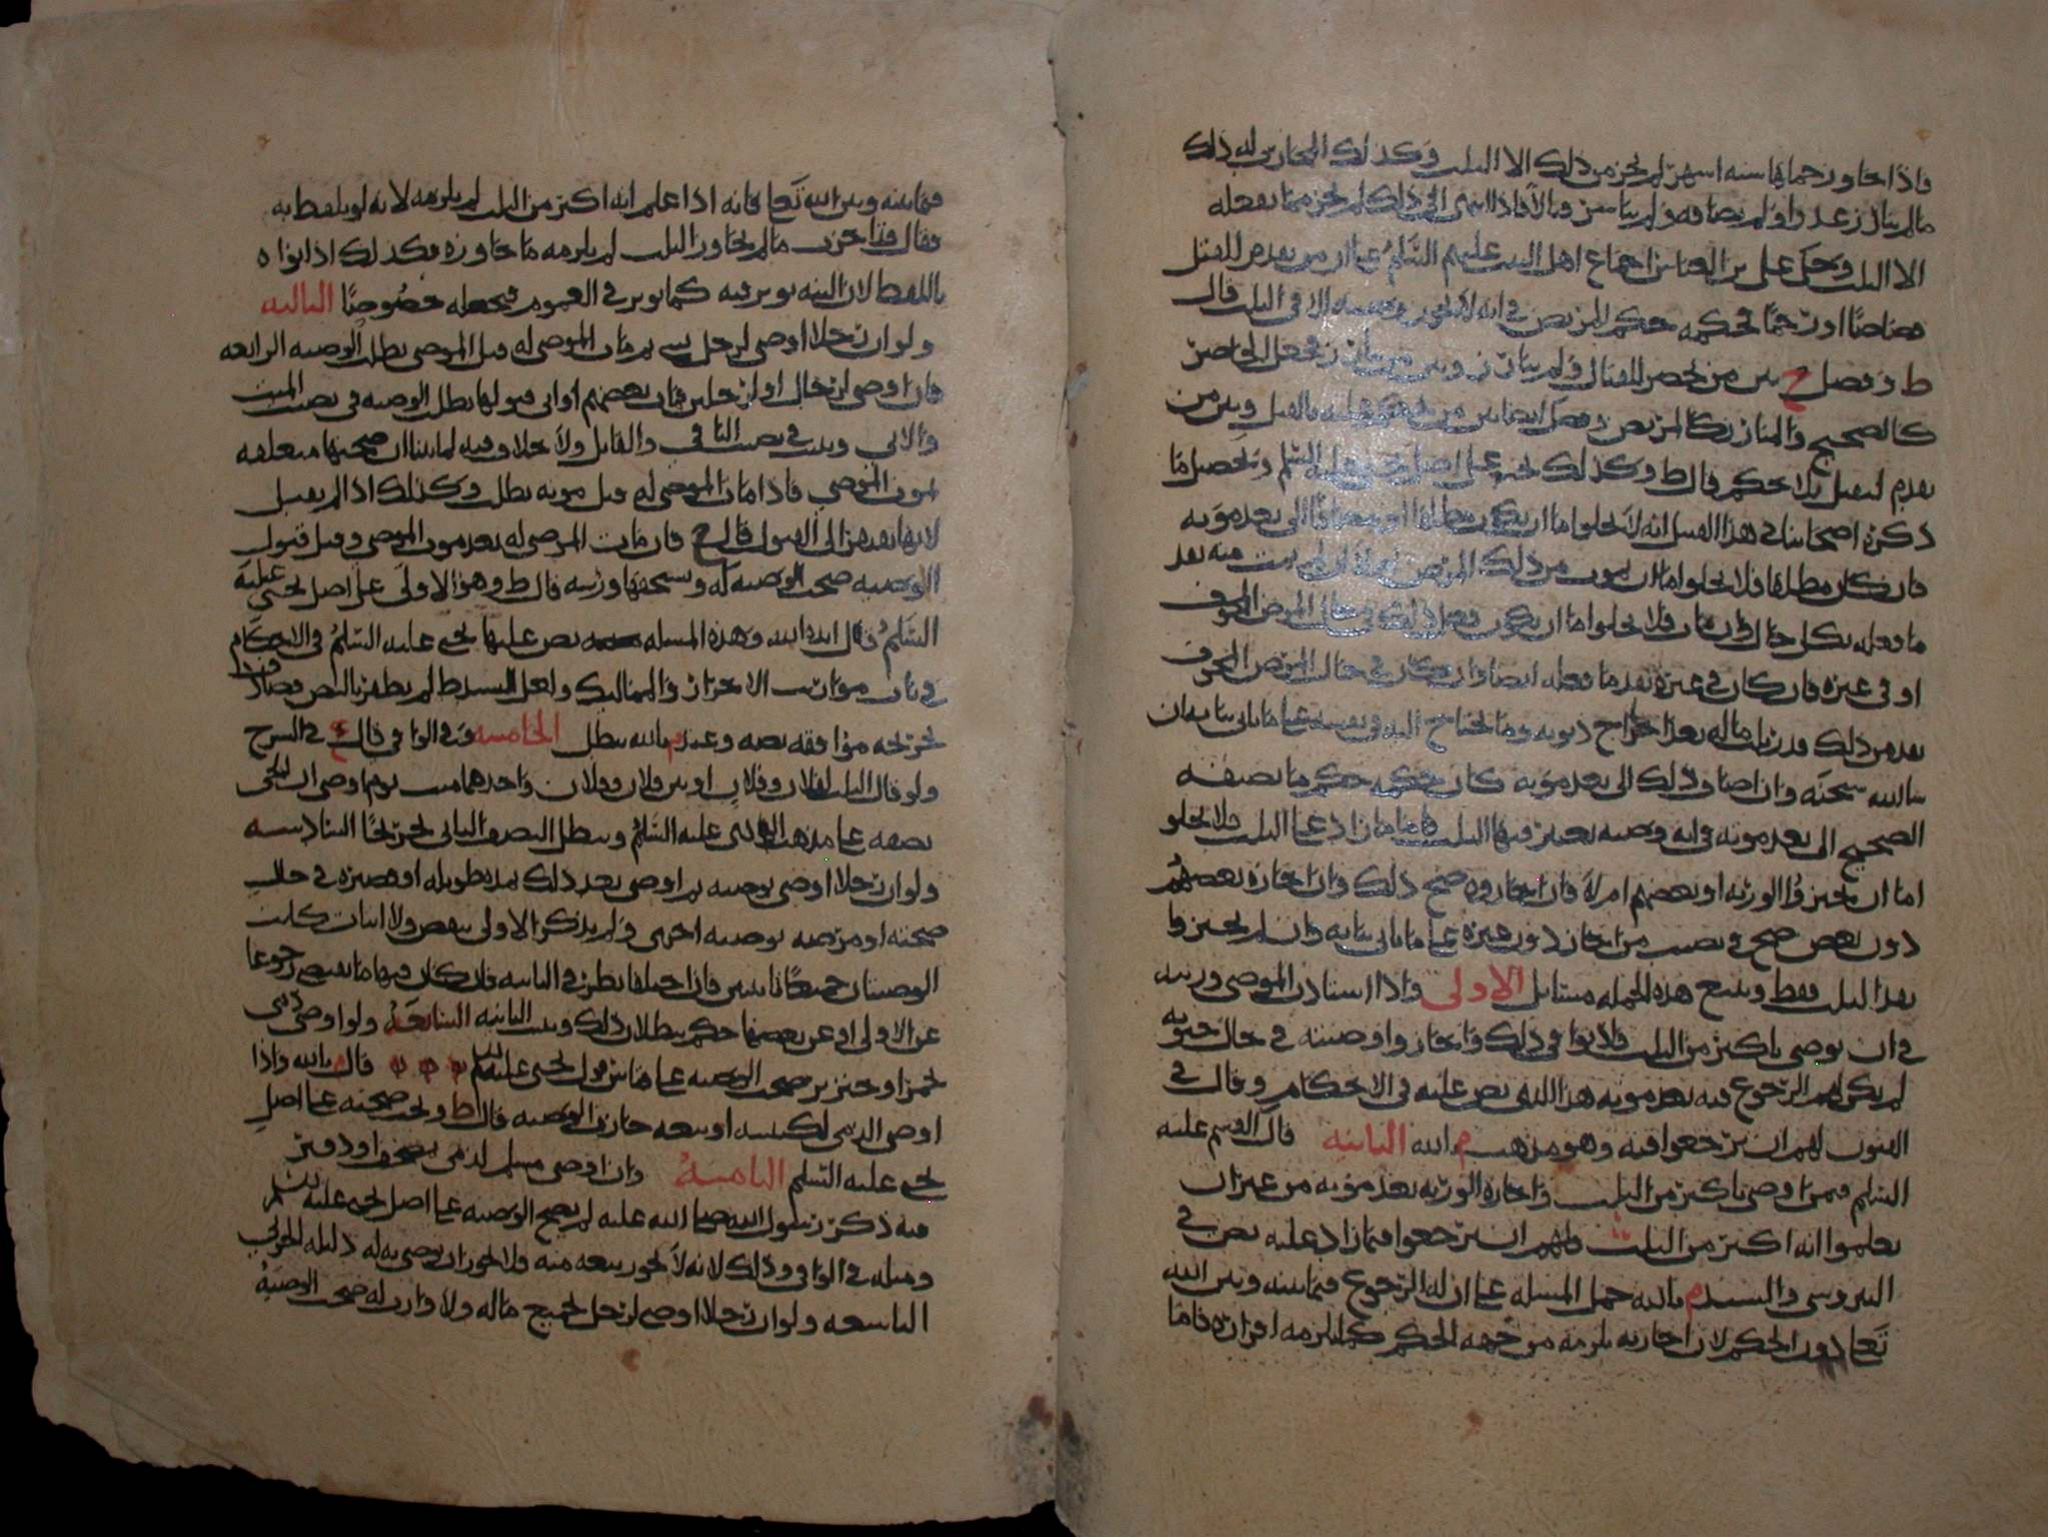 فاذا جاوز حملها ستة اشهر لم يجز من ذلك الا الثلث وكذلك المحارب له ذلك
ما لم يبارز عدوا او لم يصافه ولم يباشر قتالا فاذا انتهى الى ذلك لم يجز مما يفعله
الا الثلث وحكى علي بن العباس اجماع اهل البيت عليهم السلم على ان من يقدم للقتل
قصاصا او رجما فحكمه حكم المريض في انه لا يجوز وصيته الا في الثلث قال
ط وفصل ح بين من حضر للقتال ولم يبارز وبين من بارز فجعل الحاضر
كالصحيح والمبارز كالمريض وفصل ايضا بين من حكم عليه بالقتل وبين من
يقدم ليقتل بلا حكم قال ط وكذلك يجي على اصل يحيى عليه السلم وتحصيل ما
ذكره اصحابنا في هذا الفصل انه لا يخلو اما ان يكون مطلقا او مضافا الى بعد موته
فان كان مطلقا فلا يخلو اما ان يموت من ذلك المرض او لا فان لم يمت منه نفذ
ما فعله بكل حال وان مات فلا يخلو اما ان يكون فعل ذلك في حال المرض المخوف
او في غيره فان كان في غيره نفذ ما فعله ايضا وان كان في حال المرض المخوف
نفذ من ذلك قدر ثلث ماله بعد اخراج ديونه وما يحتاج اليه وبقسمه على ما ياتي بيانه ان
شا الله سبحنه وان اضاف ذلك الى بعد موته كان حكمه حكم ما يضيفه
الصحيح الى بعد موته في انه وصيه يعتبر فيها الثلث فاما ما زاد على الثلث فلا يخلو
اما ان يجيزوا الورثه او بعضهم ام لا فان اجازوه صح ذلك وان اجازه بعضهم
دون بعض صح في نصيب من اجاز دون غيره على ما ياتي بيانه وان لم يجيزوا
نفذ الثلث فقط ويتبع هذه الجمله مسائل الاولى واذا استاذن الموصي ورثته
في ان يوصي باكثر من الثلث فاذنوا في ذلك واجازوا وصيته في حال حيوته
لم يكن لهم الرجوع فيه بعد موته هذا الذي نص عليه في الاحكام وقال في
الفنون لهم ان يرجعوا فيه وهو مذهب م بالله الثانيه قال القسم عليه
السلم فيمن اوصى باكثر من الثلث واجازه الورثه بعد موته من غير ان
يعلموا انه اكثر من الثلث فلهم ان يرجعوا فيما زاد عليه نص في
النيروسي والسيد م بالله حمل المسله على ان له الرجوع فيما بينه وبين الله
تعا دون الحكم لان اجازته يلزمه من جهه الحكم كما يلزمه اقراره فاما
فيما بينه وبين الله تعا فانه اذا علم انه اكثر من الثلث لم يلزمه لانه لو تلفظ به
فقال قد اجزت ما لم يجاوز الثلث لم يلزمه ما جاوزه فكذلك اذا نواه
باللفظ لان النيه يوثر فيه كما يوثر في العموم فيجعله خصوصا الثالثه
ولو ان رجلا اوصى لرجل بشي ثم مات الموصى له قبل الموصي بطلت الوصيه الرابعه
فان اوصى لرجال او لرجلين فمات بعضهم او ابى قبولها بطلت الوصيه في نصيب الميت
والابي وثبتت في نصيب الباقي والقابل ولا خلاف فيه لما بينا ان صحتها متعلقه
بموت الموصي فاذا مات الموصى له قبل موته بطلت وكذلك اذا لم يقبل
لانها تفتقر الى القبول قال ح فان مات الموصى له بعد موت الموصي وقبل قبول
الوصيه صحت الوصيه له ويستحقها ورثته قال ط وهو الاولى على اصل يحيى عليه
السلم قال ايده الله وهذه المسله نص عليها يحيى عليه السلم في الاحكام
في باب مواريث الاحرار والمماليك ولعل السيد ط لم يظفر بالنص فصادف
تخريجه موافقه نصه وعند م بالله يبطل الخامسه وفي الوافي قال ع في الشرح
ولو قال الثلث لفلان وفلان او بين فلان وفلان واحدهما ميت يوم اوصى ان للحي
نصفه على مذهب الهادي عليه السلم ويبطل النصف الثاني تخريجا السادسه
ولو ان رجلا اوصى بوصيه ثم اوصى بعد ذلك بمده طويله او قصيره في حال
صحته او مرضه بوصيه اخرى ولم يذكر الاولى بنقض ولا اثبات كانت
الوصيتان جميعا ثابتتين فان اختلفا نظر في الثانيه فان كان فيها ما يقتضي رجوعا
عن الاولى او عن بعضها حكم ببطلان ذلك وثبتت الثانيه السابعه ولو اوصى ذمي
بخمر او خنزير صحت الوصيه على قياس قول يحيى عليه السلم قال م بالله واذا
اوصى الذمي لكنيسه او بيعه جازت الوصيه قال ط وتجب صحته على اصل
يحيى عليه السلم الثامنه وان اوصى مسلم لذمي بمصحف او دفتر
فيه ذكر رسول الله صلى الله عليه لم يصح الوصيه على اصل يحيى عليه السلم
ومثله في الوافي وذلك لانه لا يجوز بيعه منه فلا يجوز ان يوصي به له دليله الحربي
التاسعه ولو ان رجلا اوصى لرجل بجميع ماله ولا وارث له صحت الوصيه